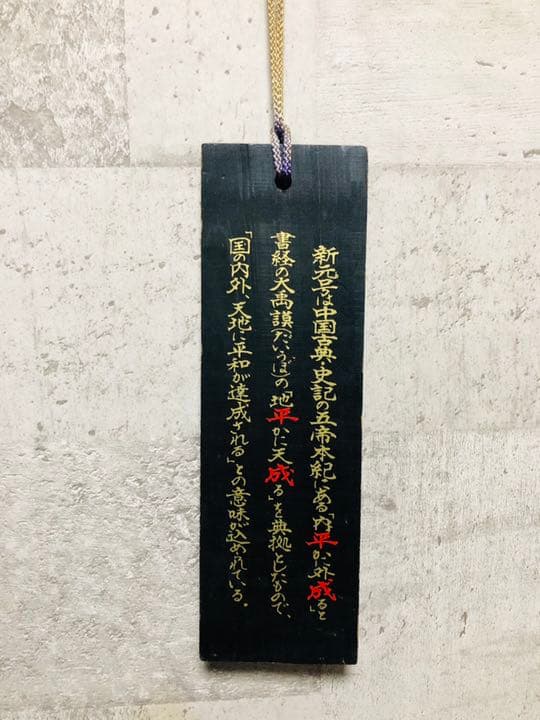 新元号は中国古典、史記の五帝本紀にある「内平かに外成る」と
書経の大禹謨(だいうぼ)の「地平かに天成る」を典拠としたもので、
「国の内外、天地に平和が達成される」との意味が込められている。